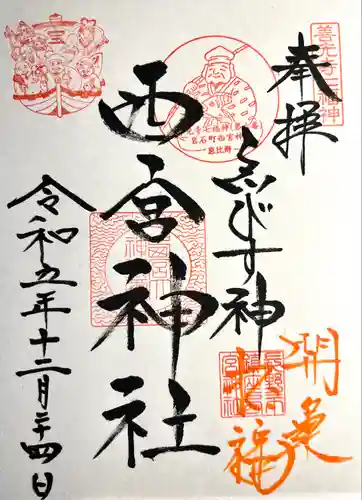 奉拝
善光寺七福神
ゑびす神
西宮神社
岩石町西宮神
恵比寿
開運
招福
令和五年十二月二十四日